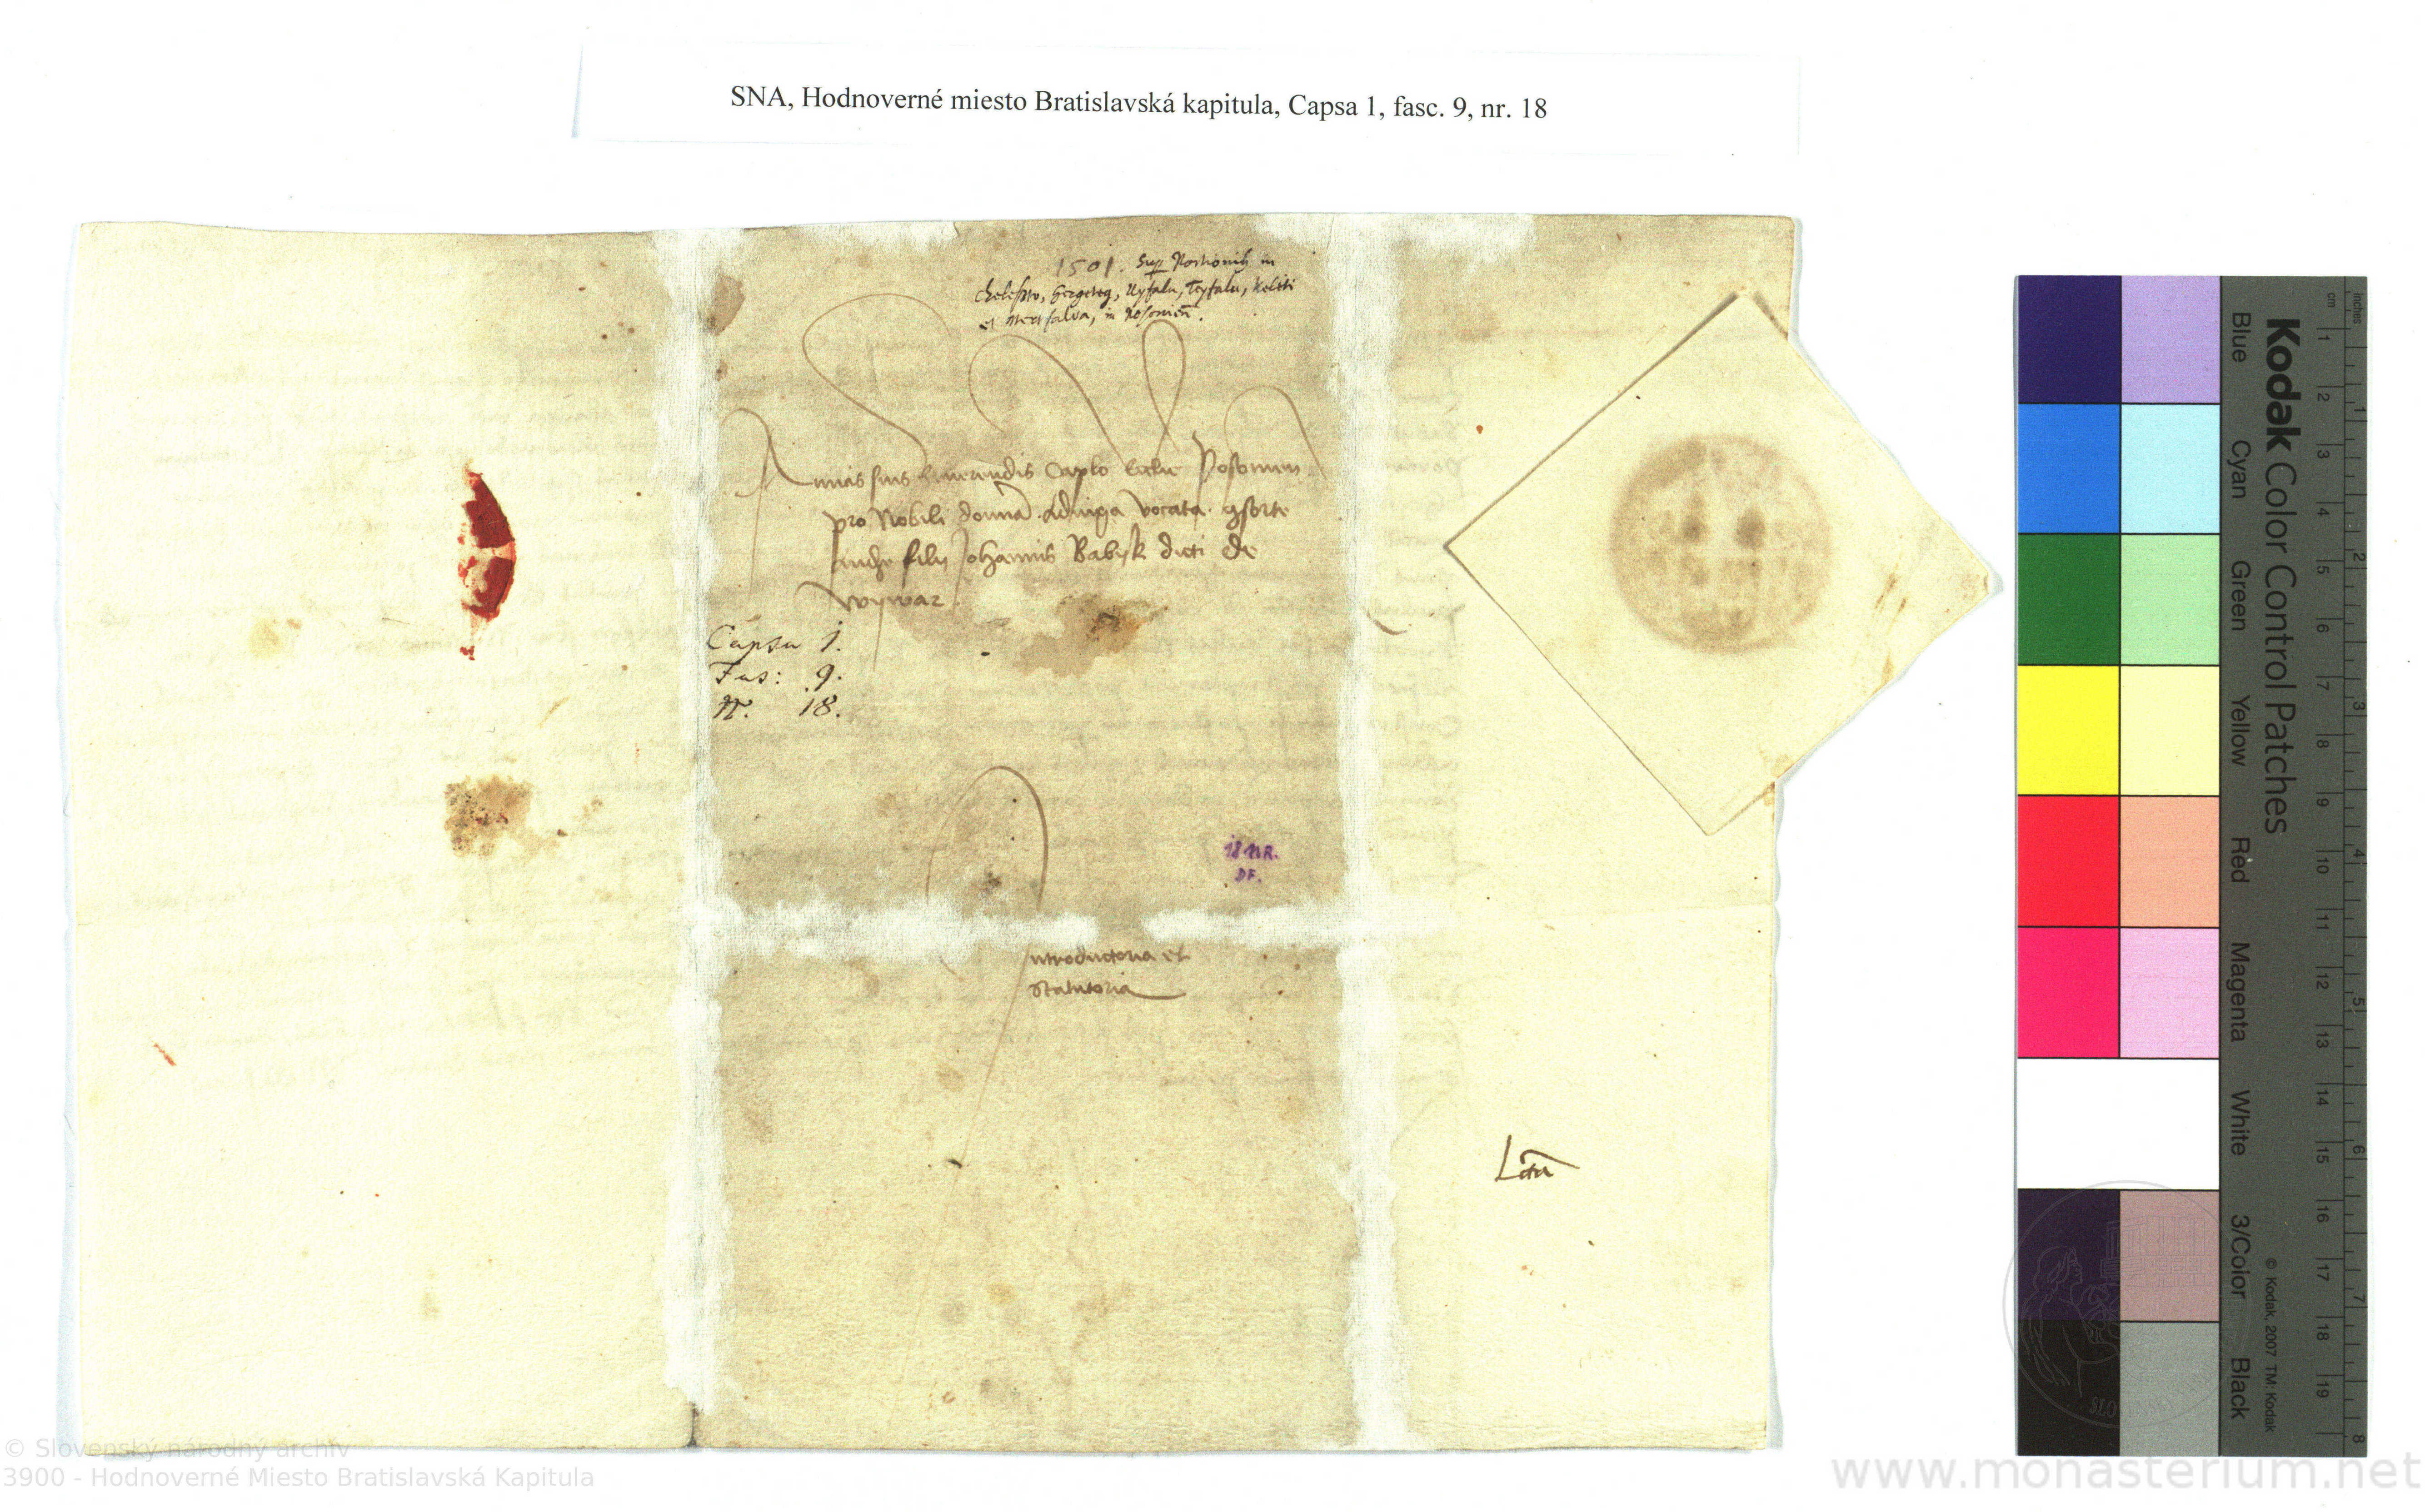 SNA, Hodnoverné miesto Bratislavská kapitula, Capsa 1, fasc. 9, nr. 18
1501. Sup Portionib in
Ujfalu, Tejfalu, Keleti
et falva, in Poson.
Amicis suis Reverendis Caplo Ecclie Posonien
pro Nobili domina Adviga vocata consorte
filii Johannis Babyk dicti de
Wywar
Capsa 1.
Fas: 9.
N. 18.
18 NR.
DF.
Introductoria et
Statutoria
Kodak Color Control Patches
Blue Cyan Green Yellow Red Magenta White 3/Color Black
© Kodak, 2007 TM: Kodak
inches 1 2 3 4 5 6 7 8
cm 1 2 3 4 5 6 7 8 9 10 11 12 13 14 15 16 17 18 19
© Slovenský národný archív
3900 - Hodnoverné Miesto Bratislavská Kapitula
www.monasterium.net